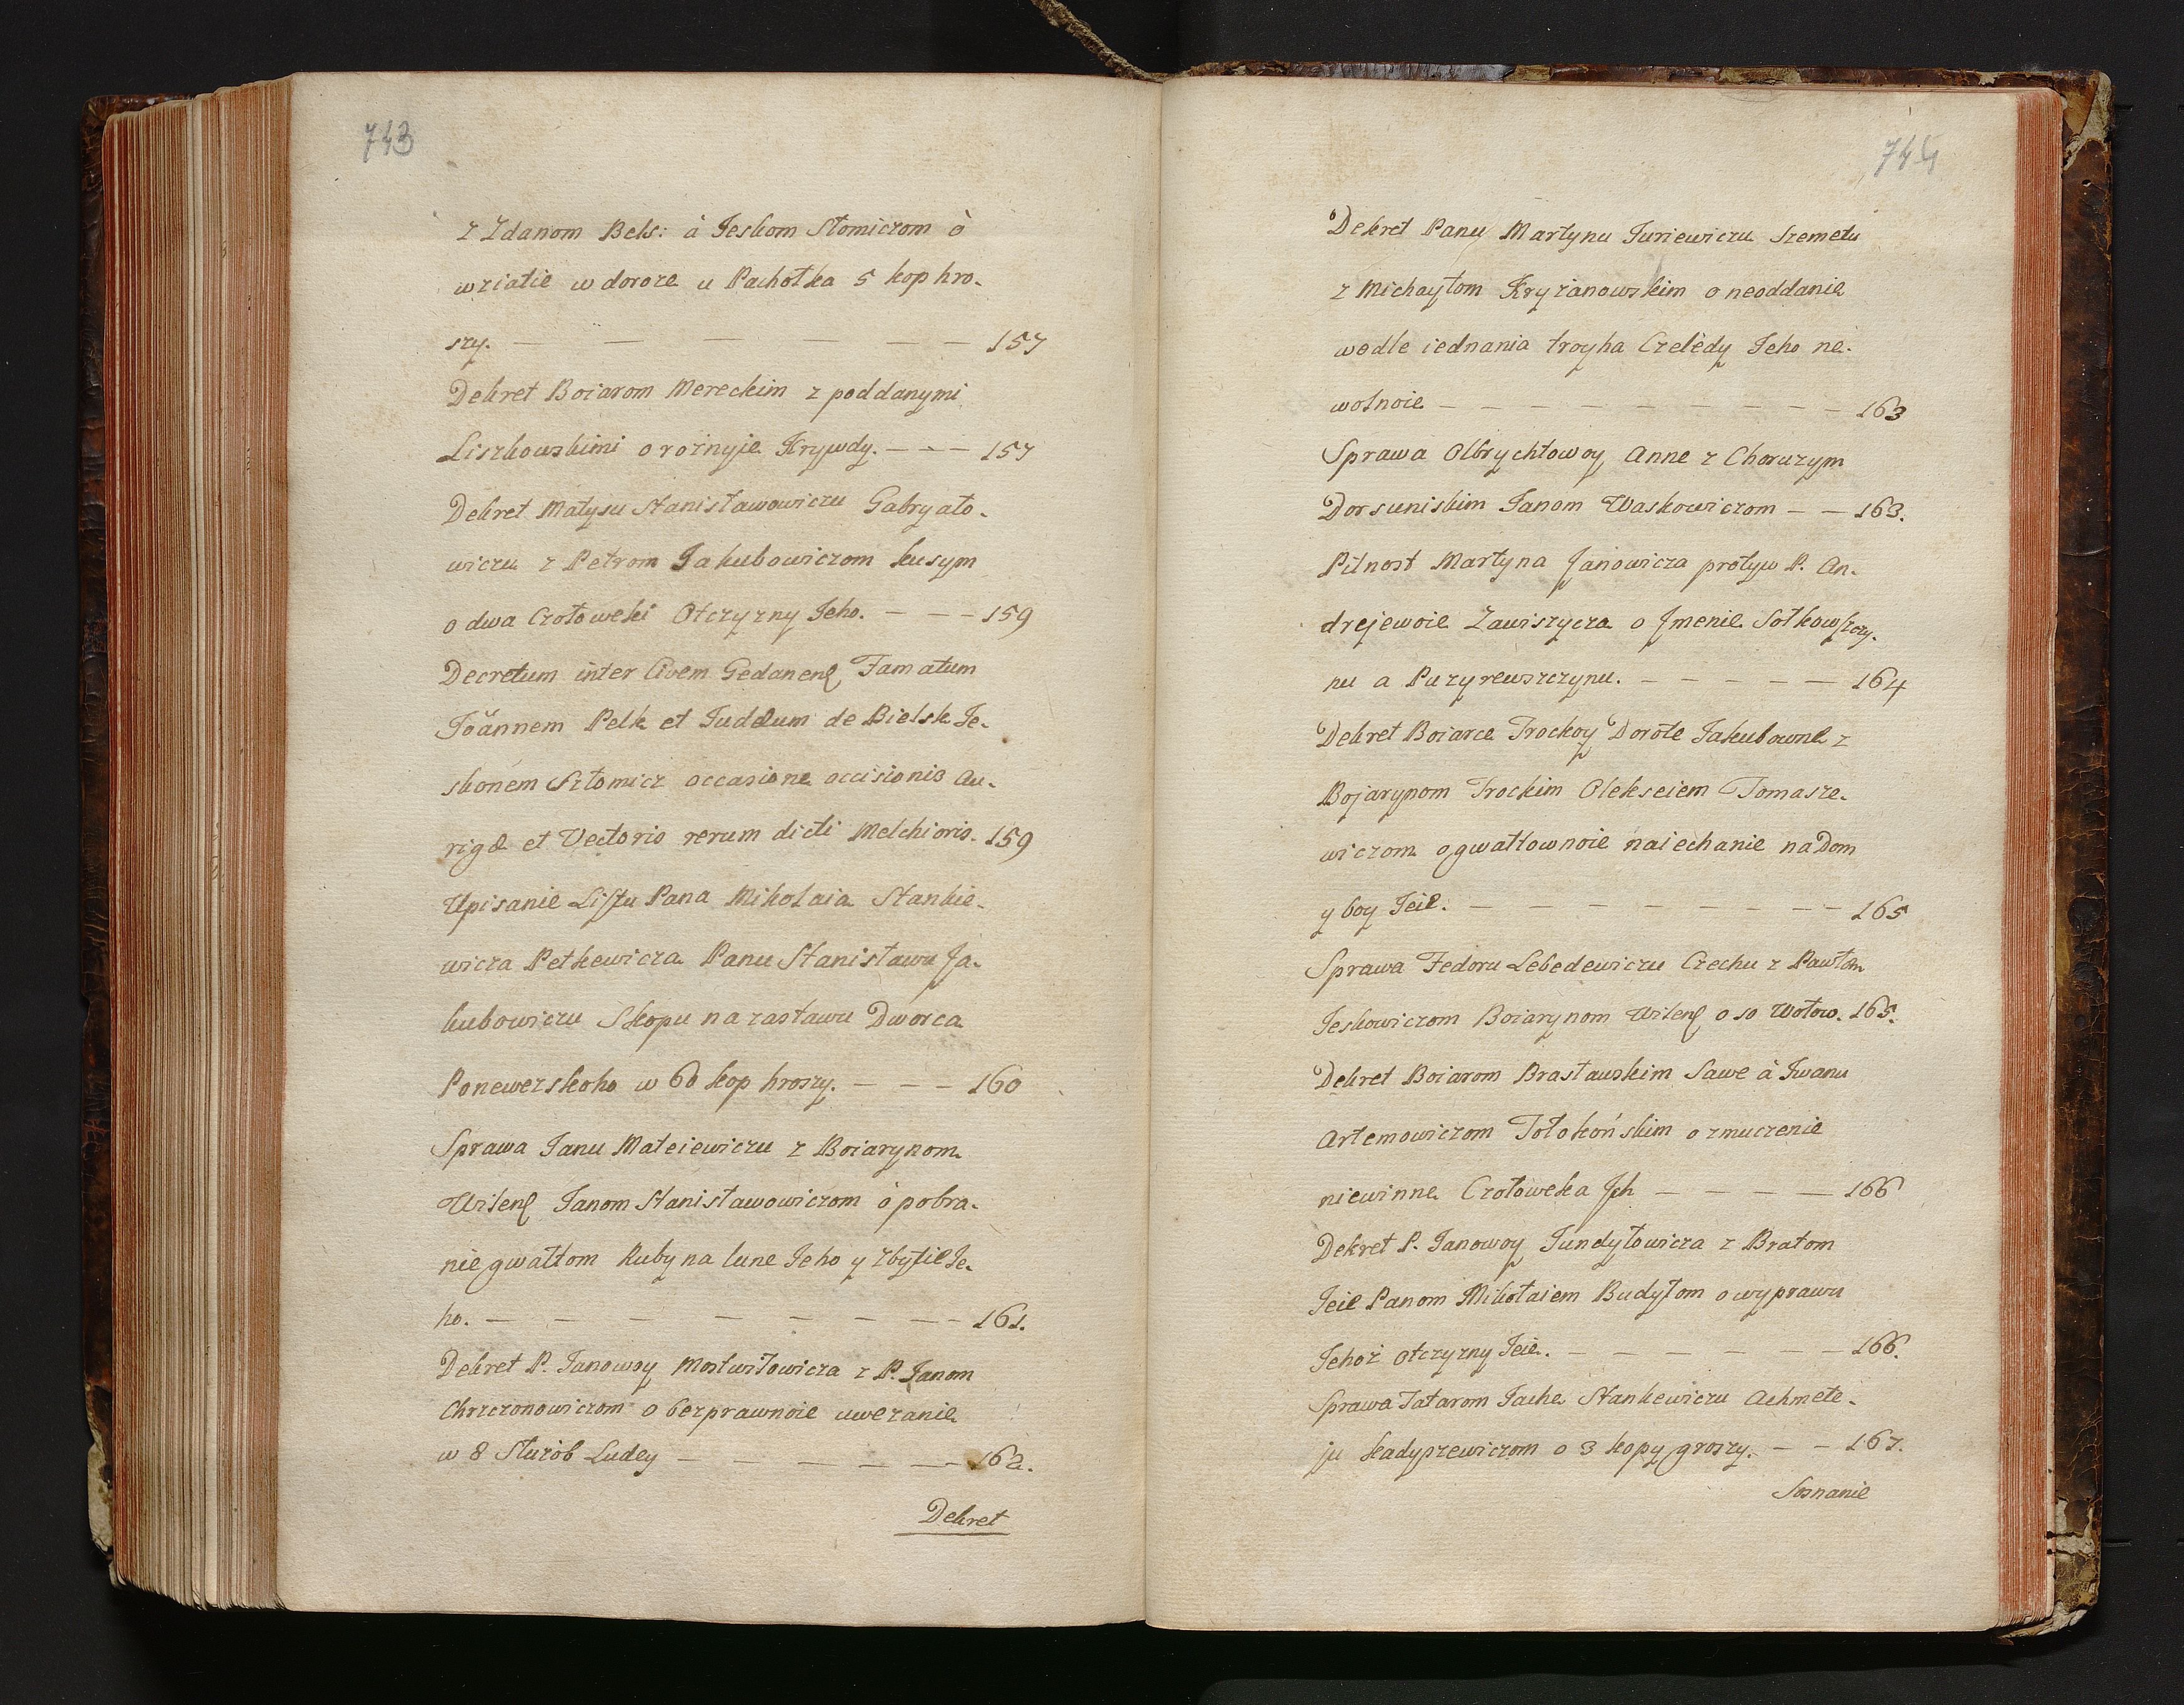 743
z Zdanom Bels: à Jeskom Słomiczom ò
wziatie w doroze u Pachołka 5 kop hro-
szy. — — — — — — 157
Dekret Boiarom Mereckim z poddanymi
Liszkowskimi o rożnyje Krywdy. — — — 157
Dekret Matysu Stanisławowiczu Gabryało-
wiczu z Petrom Jakubowiczom kusym
o dwa Czołoweki Otczyzny Jeho. — — — 159
Decretum inter Civem Gedanens Famatum
Joannem Pelk et Judæum de Bielsk Je-
skonem Szłomicz occasione occisionis Au-
rigæ et Vectoris rerum dicti Melchioris. 159
Upisanie Listu Pana Mikolaia Stankie-
wicza Petkewicza Panu Stanisławu Ja-
kubowiczu Skopu na zastawu Dworca
Ponewezskoho w 60 kop hroszy. — — — 160
Sprawa Janu Mateiewiczu z Boiarynom
Wilens Janom Stanisławowiczom ò pobra-
nie gwałtom Ruby na lune Jeho y zbytie Je-
ho. — — — — — — — 161.
Dekret P. Janowoy Mostwiłowicza z P. Janom
Chrzczonowiczom o bezprawnoie uwezanie
w 8 Służob Ludey — — — — — — 162.
Dekret
744
Dekret Panu Martynu Juriewiczu Szemetu
z Michayłom Kryżanowskim o neoddanie
wedle iednania troyha Czelèdy Jeho ne-
wolnoie — — — — — — — — — 163
Sprawa Olbrychtowoy Anne z Choruzym
Dorsuniskim Janom Waskowiczom — — 163.
Pilnost Martyna Janowicza protyw P. An-
drejewoie Zawiszycza o Jmenie Sołkowszczy-
nu a Puzyrewszczynu. — — — — — 164
Dekret Boiarce Trockoy Dorote Jakubowne z
Bojarynom Trockim Olekseiem Tomasze-
wiczom o gwałtownoie naiechanie na Dom
y boy Jeie. — — — — — — — — 165
Sprawa Fedoru Lebedewiczu Czechu z Pawłom
Jeskowiczom Boiarynom Wilens o so Wołow. 165.
Dekret Boiarom Brasławskim Sawe à Jwanu
Artemowiczom Tołokońskim o zmuczenie
niewinne Czołoweka Jch — — — — 166
Dekret P. Janowoy Jundyłowicza z Bratom
Jeie Panom Mikołaiem Budyłom o wyprawu
Jehoż otczyzny Jeie. — — — — — — 166.
Sprawa Tatarom Jache Stankewiczu Achmete-
ju kadyszewiczom o 3 kopy groszy. — — 167.
Soznanie